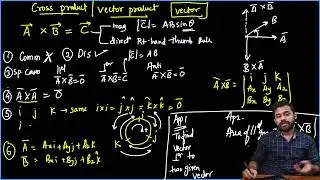 Cross product / vector product / vector
A × B = C
mag |C| = AB sinθ
direct Rt-hand thumb Rule
A × B
B
A
B × A
① Comm ✗ ② Dis ✓
|C| = AB
③ Sp Case
A×B=0
A×B=C
Anti
A×B=0
④ A×A = 0
⑤ i j k → same i×i = j×j = k×k = 0
A×B =
i j k
Ax Ay Az
Bx By Bz
⑥ A = Axi + Ayj + Azk
B = Bxi + Byj + Bzk
App 1
To find
vector
to
two given
vector
App 2
Area of